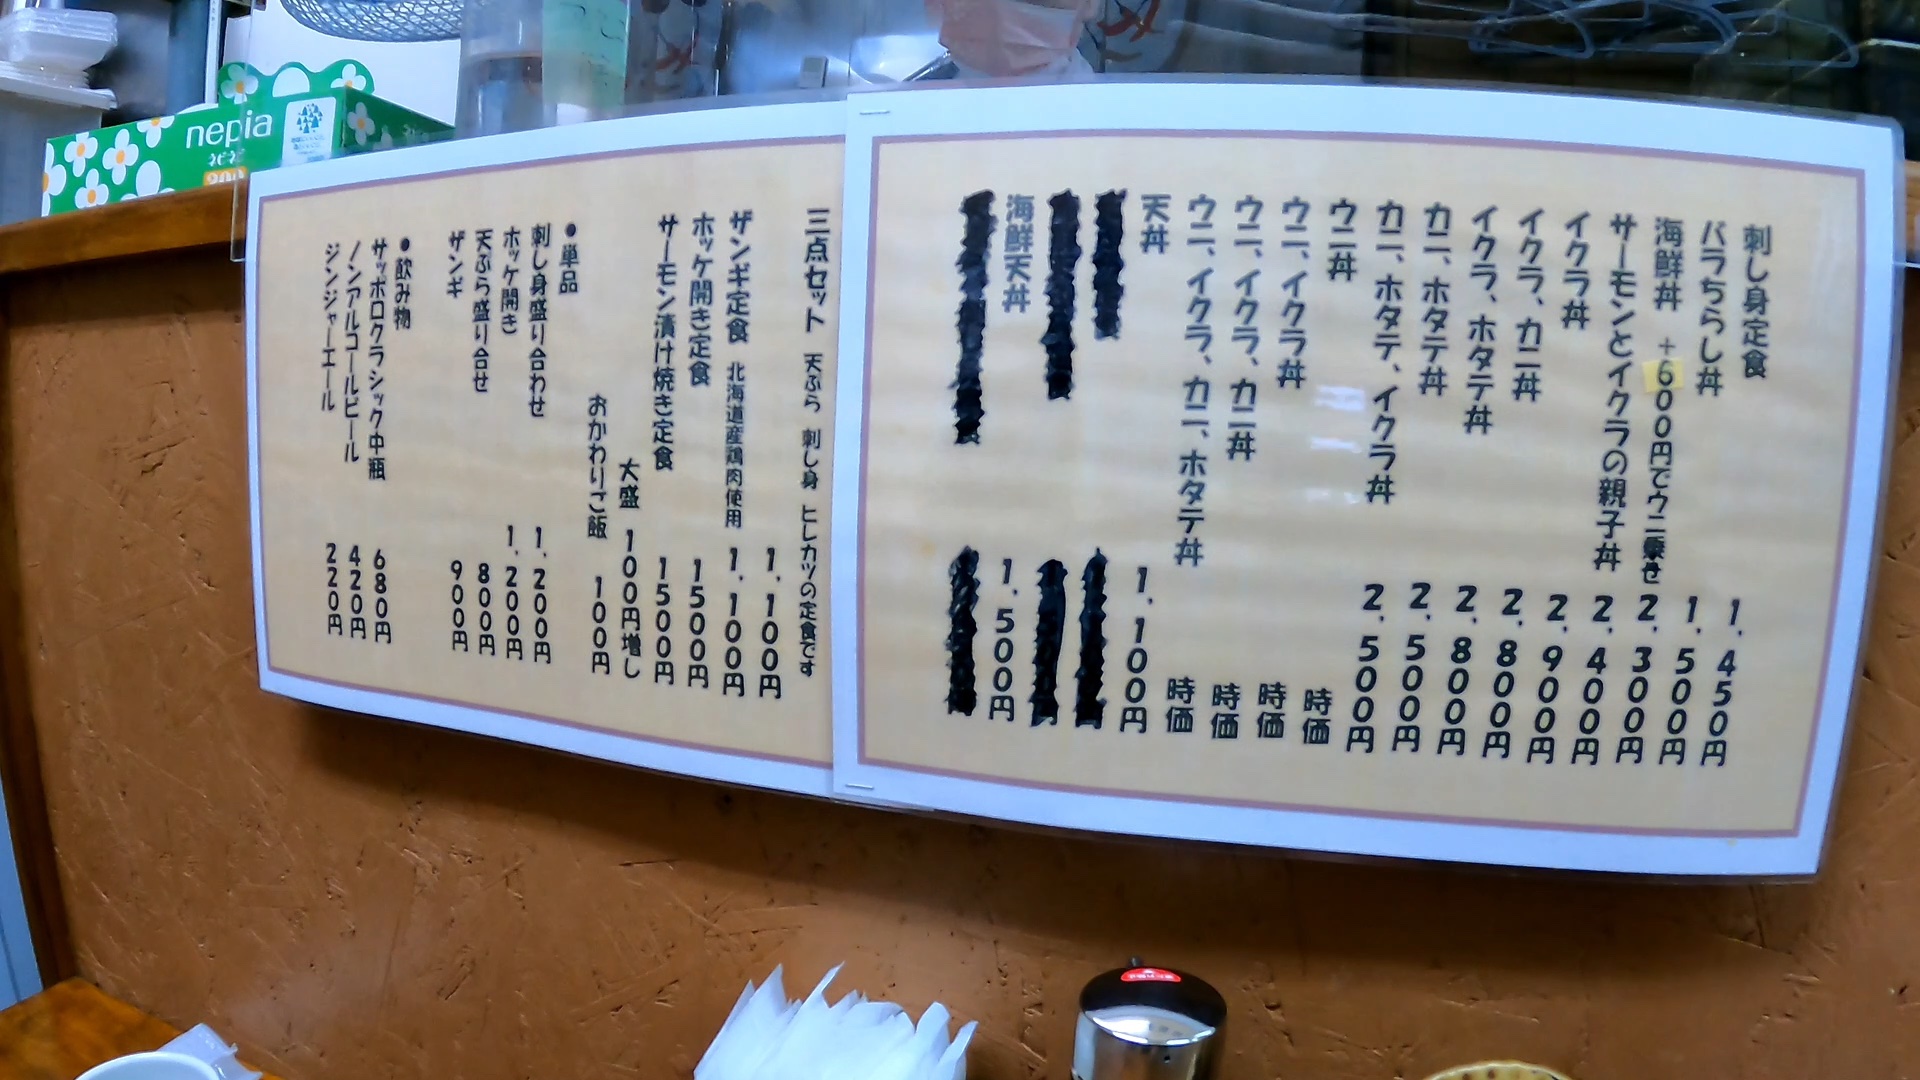 刺し身定食 1,450円
バラちらし丼 1,500円
海鮮丼 +600円でウニ乗せ 2,300円
サーモンとイクラの親子丼 2,400円
イクラ丼 2,900円
イクラ、カニ丼 2,800円
イクラ、ホタテ丼 2,800円
カニ、ホタテ丼 2,500円
カニ、ホタテ、イクラ丼 2,500円
ウニ丼 時価
ウニ、イクラ丼 時価
ウニ、イクラ、カニ丼 時価
ウニ、イクラ、カニ、ホタテ丼 時価
天丼 1,100円
海鮮天丼 1,500円
三点セット 天ぷら 刺し身 ヒレカツの定食です
1,100円
ザンギ定食 北海道産鶏肉使用 1,100円
ホッケ開き定食 1500円
サーモン漬け焼き定食 1500円
大盛 100円増し
おかわりご飯 100円
●単品
刺し身盛り合わせ 1,200円
ホッケ開き 1,200円
天ぷら盛り合せ 800円
ザンギ 900円
●飲み物
サッポロクラシック中瓶 680円
ノンアルコールビール 420円
ジンジャーエール 220円
nepia
ネピネピ